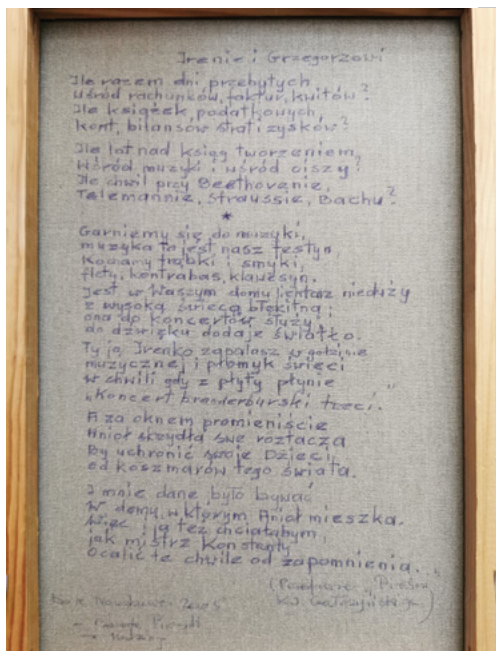 Irenie i Grzegorzowi
Ile razem dni przebytych
Wśród rachunków, faktur, kwitów?
Ile książek podatkowych,
Kont, bilansów strat i zysków?
Ile lat nad ksiąg tworzeniem,
Wśród muzyki i wśród ciszy?
Ile chwil przy Beethovenie,
Telemannie, Straussie, Bachu?
*
Garniemy się do muzyki,
muzyka to jest nasz festyn,
Kochamy trąbki i smyki,
flety, kontrabas, klawesyn.
Jest w Waszym domu lichtarz nieduży
z wysoką świecą błękitną;
ona do koncertów służy,
do dźwięku dodaje światło.
Ty ją, Irenko zapalasz w godzinie
muzycznej i płomyk świeci
w chwili gdy z płyty płynie
„Koncert brandenburski trzeci."
A za oknem promieniście
Anioł skrzydła swe roztacza
By uchronić swoje Dzieci
od koszmarów tego świata.
I mnie dane było bywać
W domu, w którym Anioł mieszka.
Więc i ja też chciałabym,
jak mistrz Konstanty
Ocalić te chwile od zapomnienia.
2005